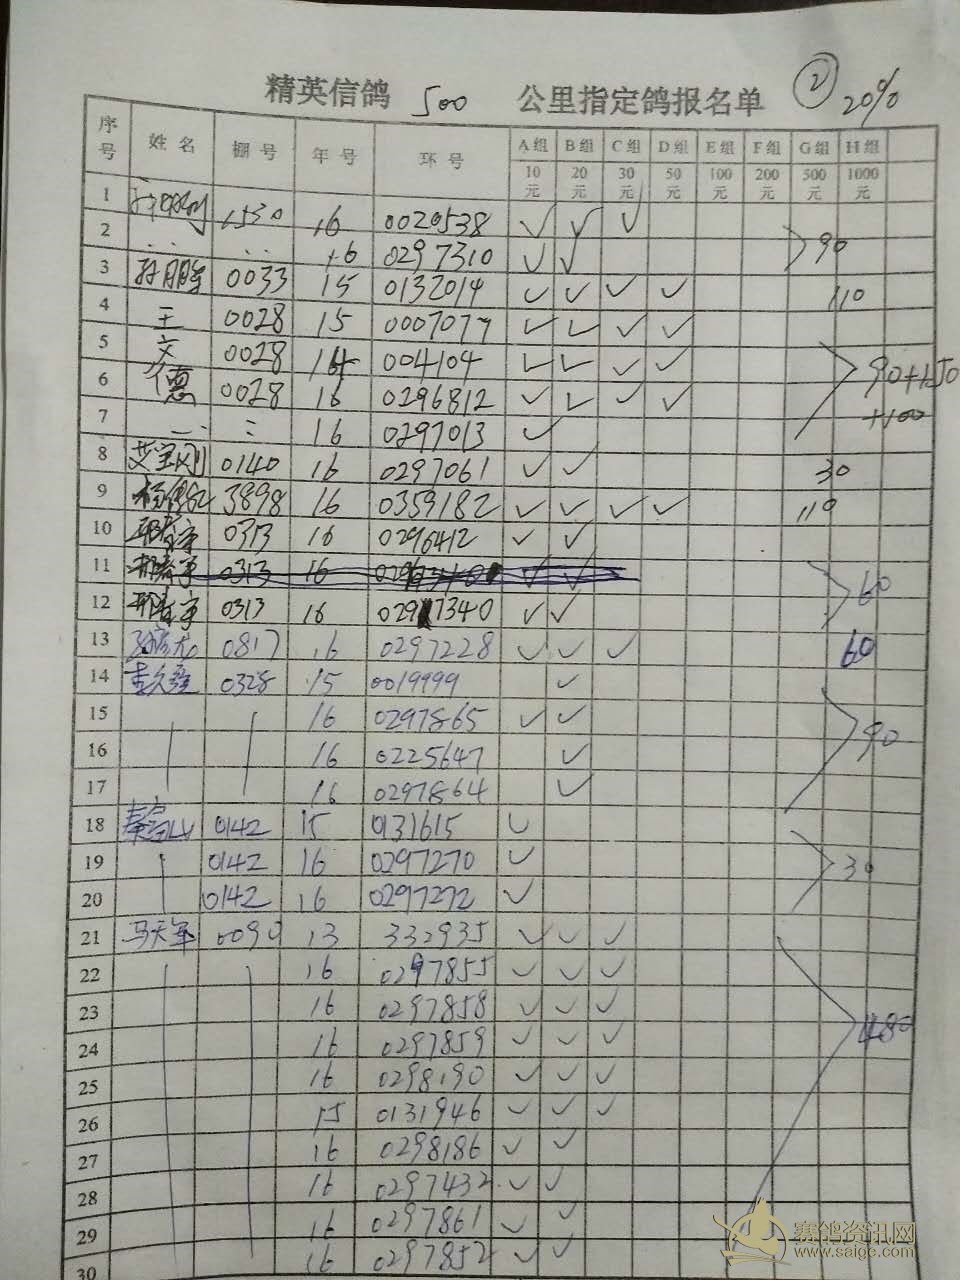 精英信鸽 500 公里指定鸽报名单 ② 20%
序号 姓名 棚号 年号 环号 A组 B组 C组 D组 E组 F组 G组 H组
10元 20元 30元 50元 100元 200元 500元 1000元
1 1530 16 0020538 ✓ ✓ ✓
2 16 0297310 ✓ ✓ 90
3 0033 15 0132014 ✓ ✓ ✓ ✓ 110
4 王 0028 15 0007077 ✓ ✓ ✓ ✓
5 文 0028 14 004104 ✓ ✓ ✓ ✓ 90+150
6 德 0028 16 0296812 ✓ ✓ ✓ ✓ +100
7 16 0297013 ✓
8 艾宝刚 0140 16 0297061 ✓ ✓ 30
9 3898 16 0359182 ✓ ✓ ✓ ✓ 110
10 0313 16 0296412 ✓ ✓
11 0313 16 ✓ ✓ 60
12 0313 16 0297340 ✓ ✓
13 0817 16 0297228 ✓ ✓ ✓ 60
14 0328 15 0019999 ✓
15 16 0297865 ✓ ✓ 90
16 16 0225647 ✓
17 16 0297864 ✓
18 0142 15 0131615 ✓
19 0142 16 0297270 ✓ 30
20 0142 16 0297272 ✓
21 马天军 0090 13 332935 ✓ ✓ ✓
22 16 0297855 ✓ ✓ ✓
23 16 0297858 ✓ ✓ ✓ 480
24 16 0297859 ✓ ✓ ✓
25 16 0298190 ✓ ✓ ✓
26 15 0131946 ✓ ✓ ✓
27 16 0298186 ✓ ✓
28 16 0297432 ✓ ✓
29 16 0297861 ✓ ✓
30 16 0297852 ✓ ✓
赛鸽资讯网
www.saige.com